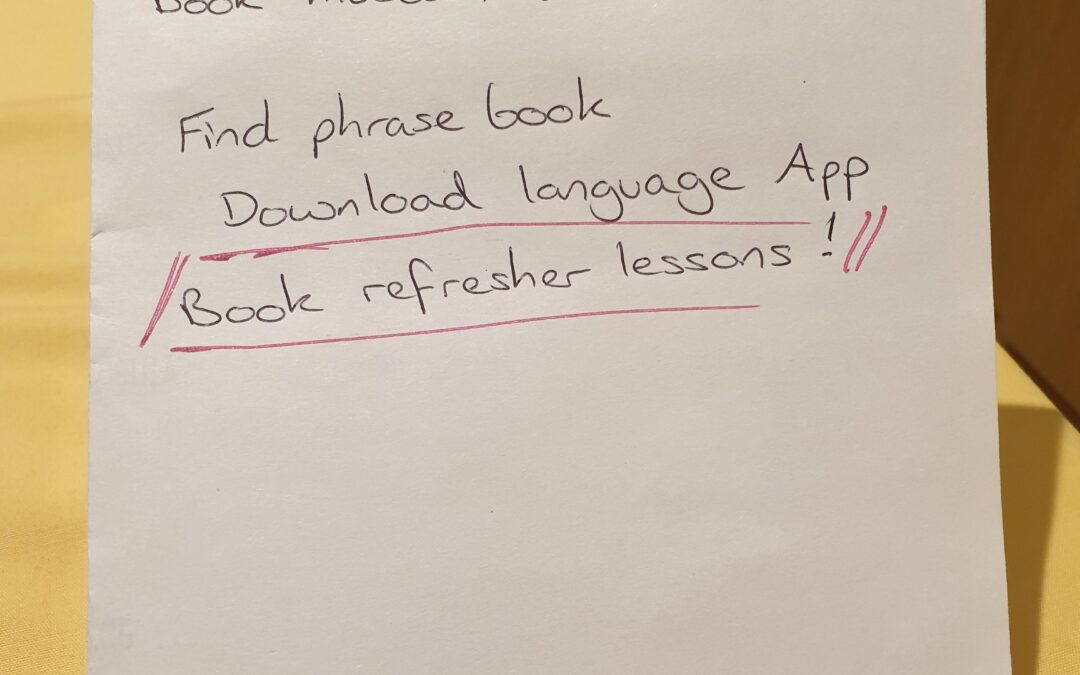 Book
Find phrase book
Download language App
Book refresher lessons !